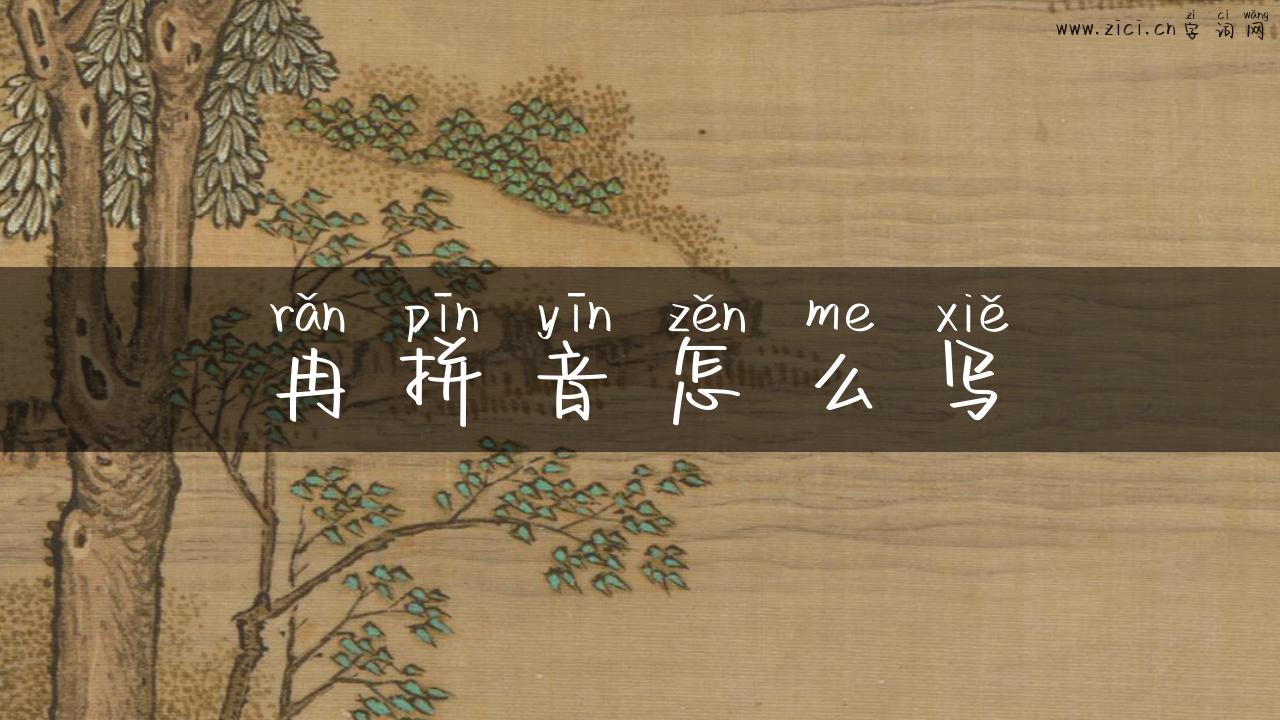 zì cí wǎng
www.zici.cn字词网
rǎn pīn yīn zěn me xiě
冉拼音怎么写